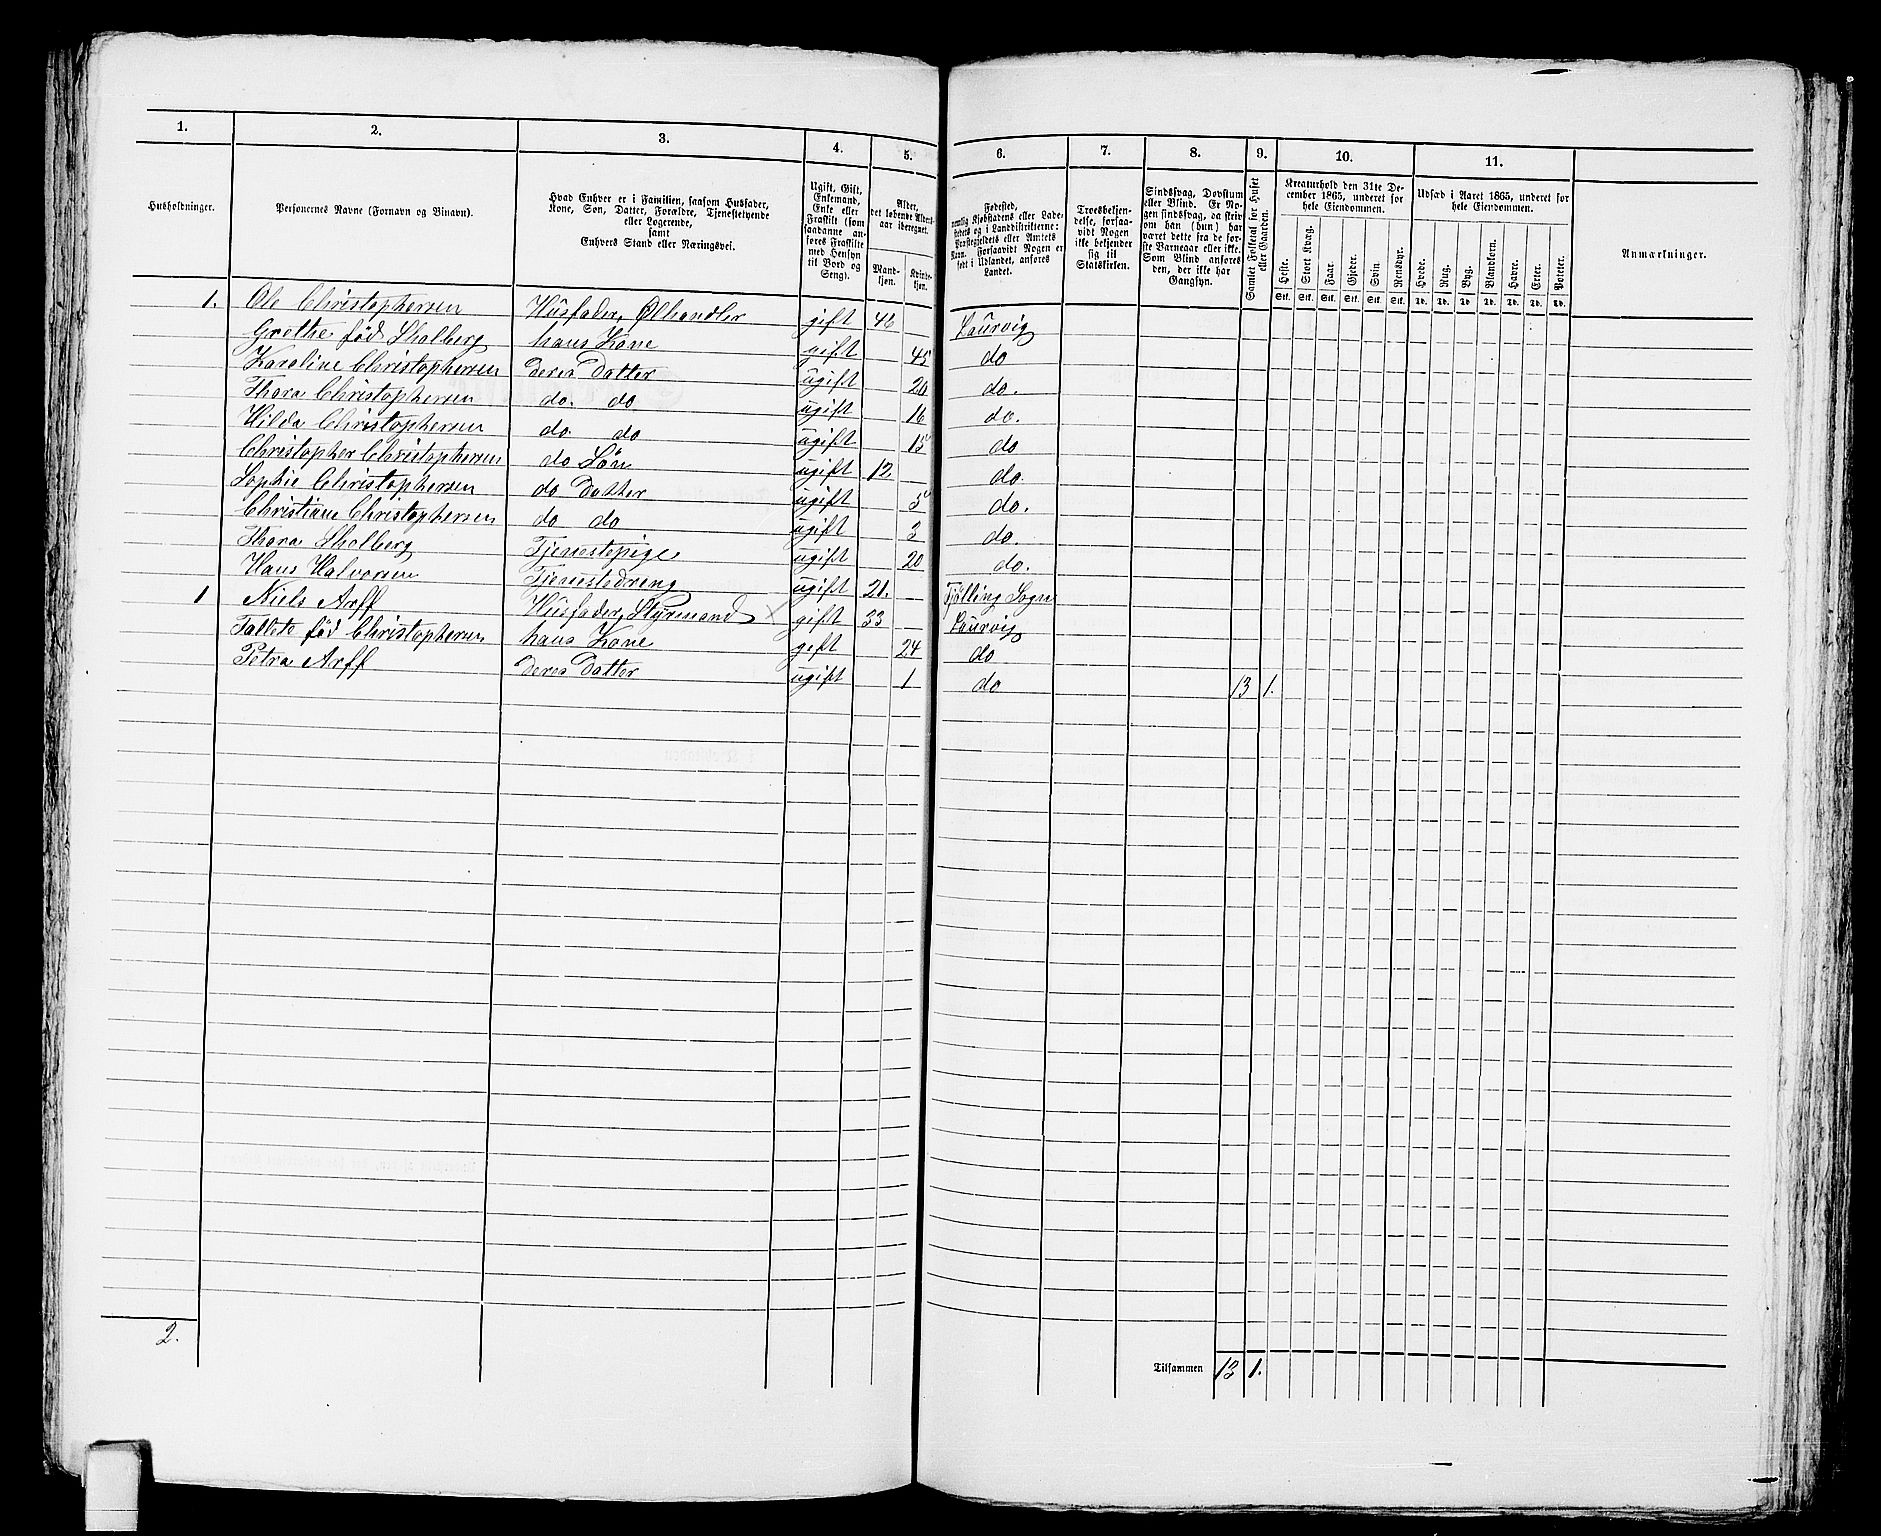 1. 2. 3. 4. 5. 6. 7. 8. 9. 10. 11.
Husholdninger.
Personernes Navne (Fornavn og Binavn).
Hvad Enhver er i Familien, saasom Husfader,
Kone, Søn, Datter, Forældre, Tjenestetyende
eller Logerende,
samt
Enhvers Stand eller Næringsvei.
Ugift, Gift,
Enkemand,
Enke eller
Fraskilt (som
saadanne an-
føres Fraskilte
med Hensyn
til Bord og
Seng).
Alder,
det løbende Alders-
aar iberegnet.
Mand-
kjøn.
Kvinde-
kjøn.
Fødested,
nemlig Kjøbstadens eller Lade-
stedets og i Landdistrikterne:
Præstegjeldets eller Amtets
Navn. Forsaavidt Nogen er
født i Udlandet, anføres
Landet.
Troesbekjen-
delse, forsaa-
vidt Nogen
ikke bekjender
sig til
Statskirken.
Sindssvag, Døvstum
eller Blind. Er No-
gen sindssvag, da skriv
om han (hun) har
været dette fra de før-
ste Barneaar eller ikke.
Som Blind anføres
den, der ikke har
Gangsyn.
Samlet Folketal for Huset
eller Gaarden.
Kreaturhold den 31te De-
cember 1865, underet for
hele Eiendommen.
Heste. Stort Kvæg. Faar. Gjeder. Svin. Rensdyr.
Stk. Stk. Stk. Stk. Stk. Stk.
Udsæd i Aaret 1865, underet for
hele Eiendommen.
Hvede. Rug. Byg. Blandkorn. Havre. Erter. Poteter.
Td. Td. Td. Td. Td. Td. Td.
Anmærkninger.
1. Ole Christophersen Husfader, Ølhandler gift 46 Laurvig
Grethe fød Skalberg hans Kone gift 45 do
Karoline Christophersen deres Datter ugift 20 do.
Thora Christophersen do. do ugift 16 do.
Hilda Christophersen do. do ugift 15 do
Christopher Christophersen do Søn ugift 12. do.
Sophie Christophersen do Datter ugift 5 do.
Christiane Christophersen do do ugift 3 do.
Thora Skolberg Tjenestepige ugift 20 do.
Hans Halvorsen Tjenestedreng ugift 21. Tjølling Sogn
1 Niels Arff Husfader, Styrmand × gift 33 Laurvig
Tallete fød Christophersen hans Kone gift 24 do
Petra Arff deres Datter ugift 1 do 13 1.
2.
Tilsammen 13 1.